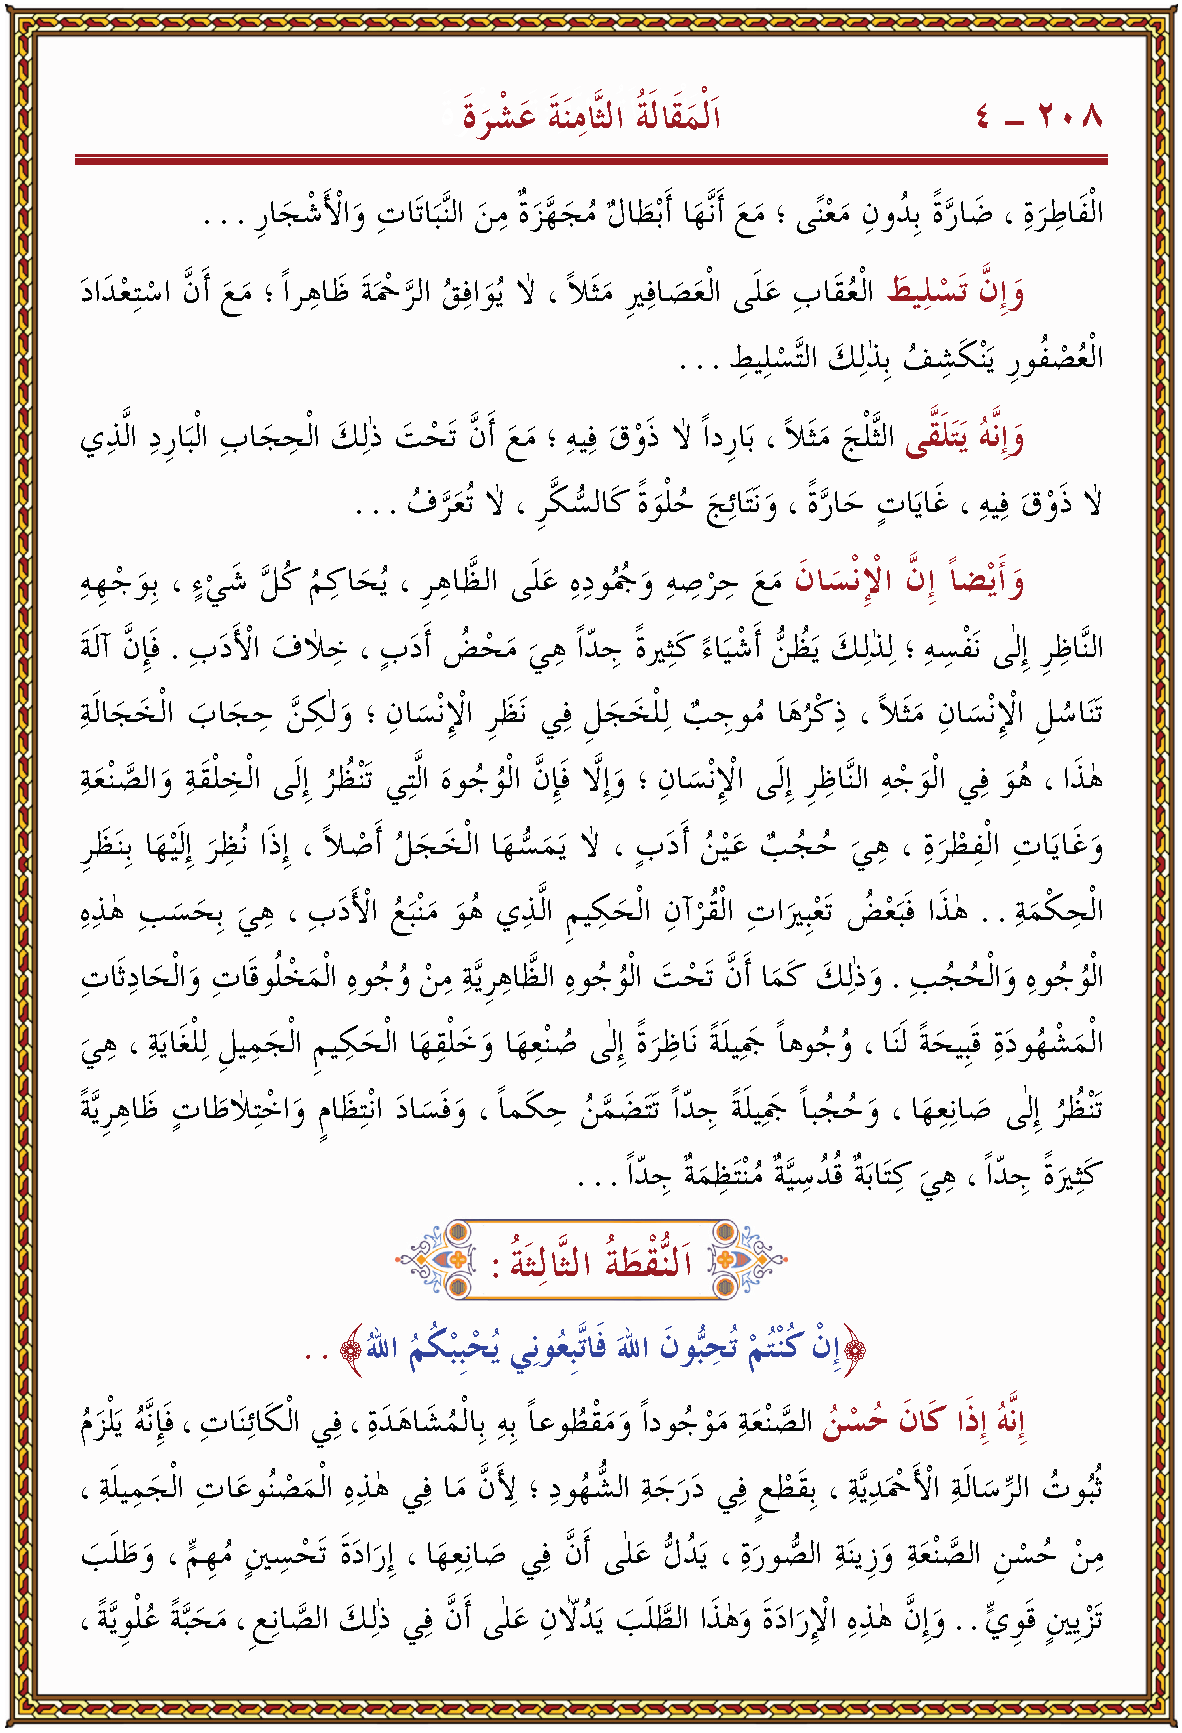 ٢٠٨ – ٤ اَلْمَقَالَةُ الثَّامِنَةَ عَشْرَةَ
الْفَاطِرَةِ ، ضَارَّةً بِدُونِ مَعْنًى ؛ مَعَ أَنَّهَا أَبْطَالٌ مُجَهَّزَةٌ مِنَ النَّبَاتَاتِ وَالْأَشْجَارِ . . .
وَإِنَّ تَسْلِيطَ الْعُقَابِ عَلَى الْعَصَافِيرِ مَثَلاً ، لاٰ يُوَافِقُ الرَّحْمَةَ ظَاهِراً ؛ مَعَ أَنَّ اسْتِعْدَادَ
الْعُصْفُورِ يَنْكَشِفُ بِذٰلِكَ التَّسْلِيطِ . . .
وَإِنَّهُ يَتَلَقَّى الثَّلْجَ مَثَلاً ، بَارِداً لاٰ ذَوْقَ فِيهِ ؛ مَعَ أَنَّ تَحْتَ ذٰلِكَ الْحِجَابِ الْبَارِدِ الَّذِي
لاٰ ذَوْقَ فِيهِ ، غَايَاتٍ حَارَّةً ، وَنَتَائِجَ حُلْوَةً كَالسُّكَّرِ ، لاٰ تُعَرَّفُ . . .
وَأَيْضاً إِنَّ الْإِنْسَانَ مَعَ حِرْصِهِ وَجُمُودِهِ عَلَى الظَّاهِرِ ، يُحَاكِمُ كُلَّ شَيْءٍ ، بِوَجْهِهِ
النَّاظِرِ إِلٰى نَفْسِهِ ؛ لِذٰلِكَ يَظُنُّ أَشْيَاءً كَثِيرَةً جِدّاً هِيَ مَحْضُ أَدَبٍ ، خِلاٰفَ الْأَدَبِ . فَإِنَّ آلَةَ
تَنَاسُلِ الْإِنْسَانِ مَثَلاً ، ذِكْرُهَا مُوجِبٌ لِلْخَجَلِ فِي نَظَرِ الْإِنْسَانِ ؛ وَلٰكِنَّ حِجَابَ الْخَجَالَةِ
هٰذَا ، هُوَ فِي الْوَجْهِ النَّاظِرِ إِلَى الْإِنْسَانِ ؛ وَإِلاَّ فَإِنَّ الْوُجُوهَ الَّتِي تَنْظُرُ إِلَى الْخِلْقَةِ وَالصَّنْعَةِ
وَغَايَاتِ الْفِطْرَةِ ، هِيَ حُجُبٌ عَيْنُ أَدَبٍ ، لاٰ يَمَسُّهَا الْخَجَلُ أَصْلاً ، إِذَا نُظِرَ إِلَيْهَا بِنَظَرِ
الْحِكْمَةِ . . هٰذَا فَبَعْضُ تَعْبِيرَاتِ الْقُرْآنِ الْحَكِيمِ الَّذِي هُوَ مَنْبَعُ الْأَدَبِ ، هِيَ بِحَسَبِ هٰذِهِ
الْوُجُوهِ وَالْحُجُبِ . وَذٰلِكَ كَمَا أَنَّ تَحْتَ الْوُجُوهِ الظَّاهِرِيَّةِ مِنْ وُجُوهِ الْمَخْلُوقَاتِ وَالْحَادِثَاتِ
الْمَشْهُودَةِ قَبِيحَةً لَنَا ، وُجُوهاً جَمِيلَةً نَاظِرَةً إِلٰى صُنْعِهَا وَخَلْقِهَا الْحَكِيمِ الْجَمِيلِ لِلْغَايَةِ ، هِيَ
تَنْظُرُ إِلٰى صَانِعِهَا ، وَحُجُباً جَمِيلَةً جِدّاً تَتَضَمَّنُ حِكَماً ، وَفَسَادَ انْتِظَامٍ وَاخْتِلاٰطَاتٍ ظَاهِرِيَّةً
كَثِيرَةً جِدّاً ، هِيَ كِتَابَةٌ قُدُسِيَّةٌ مُنْتَظِمَةٌ جِدّاً . . .
اَلنُّقْطَةُ الثَّالِثَةُ :
﴿إِنْ كُنْتُمْ تُحِبُّونَ اللهَ فَاتَّبِعُونِي يُحْبِبْكُمُ اللهُ﴾ . .
إِنَّهُ إِذَا كَانَ حُسْنُ الصَّنْعَةِ مَوْجُوداً وَمَقْطُوعاً بِهِ بِالْمُشَاهَدَةِ ، فِي الْكَائِنَاتِ ، فَإِنَّهُ يَلْزَمُ
ثُبُوتُ الرِّسَالَةِ الْأَحْمَدِيَّةِ ، بِقَطْعٍ فِي دَرَجَةِ الشُّهُودِ ؛ لِأَنَّ مَا فِي هٰذِهِ الْمَصْنُوعَاتِ الْجَمِيلَةِ ،
مِنْ حُسْنِ الصَّنْعَةِ وَزِينَةِ الصُّورَةِ ، يَدُلُّ عَلٰى أَنَّ فِي صَانِعِهَا ، إِرَادَةَ تَحْسِينٍ مُهِمٍّ ، وَطَلَبَ
تَزْيِينٍ قَوِيٍّ . . وَإِنَّ هٰذِهِ الْإِرَادَةَ وَهٰذَا الطَّلَبَ يَدُلاّٰنِ عَلٰى أَنَّ فِي ذٰلِكَ الصَّانِعِ ، مَحَبَّةً عُلْوِيَّةً ،